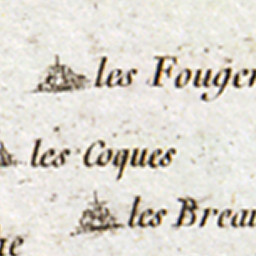 les Fouger
les Coques
les Breau